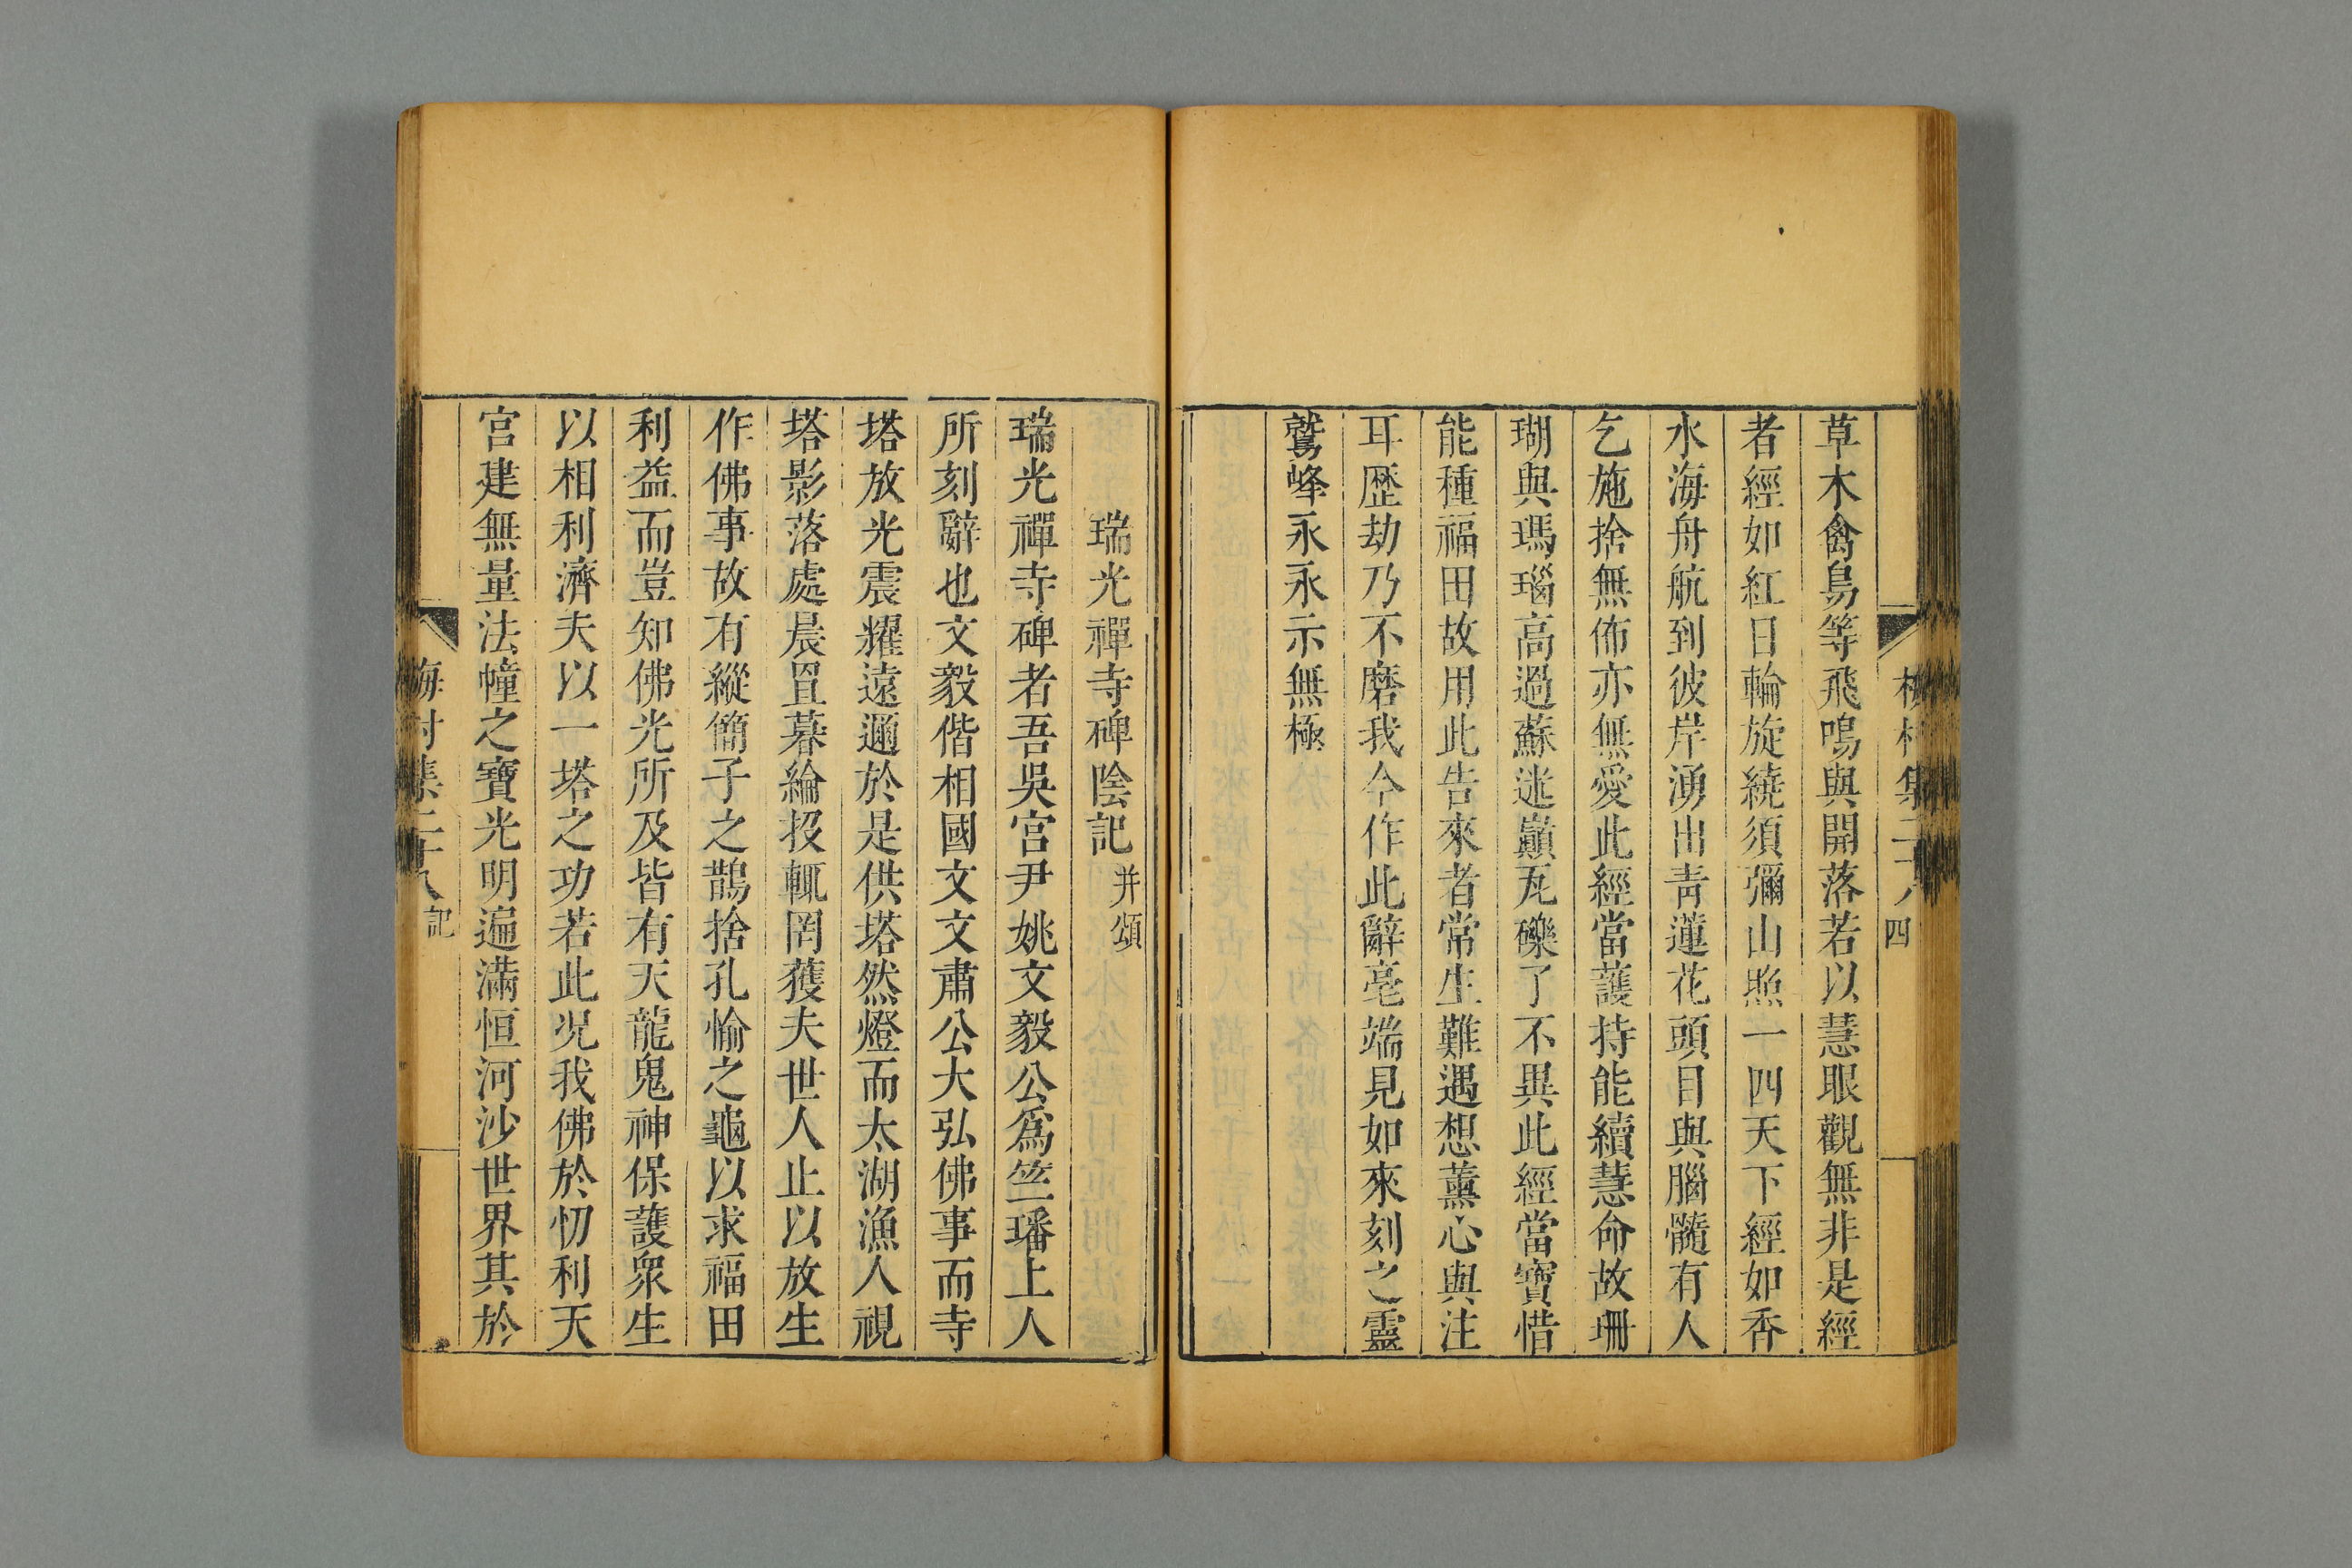 草木禽鳥等飛鳴與開落若以慧眼觀無非是經
者經如紅日輪旋繞須彌山照一四天下經如香
水海舟航到彼岸湧出青蓮花頭目與腦髓有人
乞施捨無佈亦無愛此經當護持能續慧命故珊
瑚與瑪瑙高過蘇迷巔瓦礫了不異此經當寶惜
能種福田故用此告來者常生難遇想薰心與注
耳歷劫乃不磨我今作此辭亳端見如來刻之靈
鷲峰永永示無極
四
瑞光禪寺碑陰記并頌
瑞光禪寺碑者吾吳宮尹姚文毅公爲竺璠上人
所刻辭也文毅偕相國文文肅公大弘佛事而寺
塔放光震耀遠邇於是供塔然燈而太湖漁人視
塔影落處晨罝暮綸投輒罔獲夫世人止以放生
作佛事故有縱簡子之鵲捨孔愉之龜以求福田
利益而豈知佛光所及皆有天龍鬼神保護眾生
以相利濟夫以一塔之功若此況我佛於忉利天
宮建無量法幢之寶光明遍滿恒河沙世界其於
梅村集二十八 記